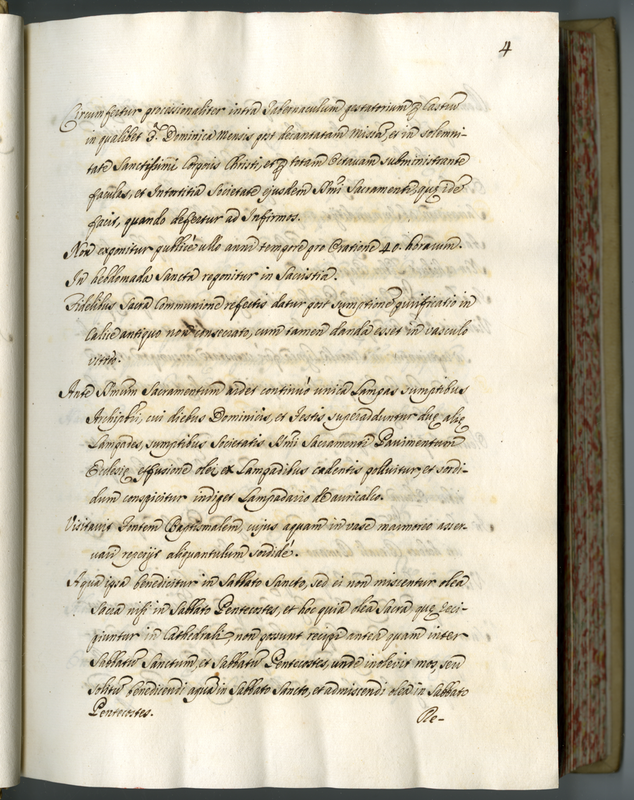 4
Circumfertur processionaliter intra Tabernaculum gestatorium p Castru
in qualibet 3.a Dominica mensis post decantatam missa, et in solemni-
tate Sanctissimi Corporis Christi, et p totam Octavam subministrante
faculas, et Intortitia Societate ejusdem SSmi Sacramenti, que idē
facit, quando defertur ad Infirmos.
Non exponitur publicè ullo anni tempore pro Oratione 40. horarum.
In hebdomada Sancta reponitur in Sacristia.
Fidelibus Sacra Communione refectis datur post sumptione purificatio in
Calice antiquo non consecrato, cum tamen danda esset in vasculo
vitreo.
Ante SSmum Sacramentum ardet continuò unica Lampas sumptibus
Archipbri, cui diebus Dominicis, et Festis superadduntur due alie
Lampades, sumptibus Societatis SSmi Sacramenti Pavimentum
Ecclesie effusione olei ex Lampadibus cadentis polluitur, et sordi-
dum conspicitur indiget Lampadario de auricalco.
Visitavit Fontem Baptismalem, cujus aquam in vase marmoreo asser-
vari reperijt aliquantulum sordidè.
Aqua ipsa benedicitur in Sabbato Sancto, sed ei non miscentur olea
Sacra nisi in Sabbato Pentecostes, et hoc quia olea Sacra que Reci-
piuntur in Cathedrali non possunt recipi antea quam inter
Sabbatū Sanctum, et Sabbatū Pentecostes, unde inolevit mos, seu
solitū benedicendi aquā in Sabbato Sancto, et admiscendi olea in Sabbato
Pentecostes.
Re-